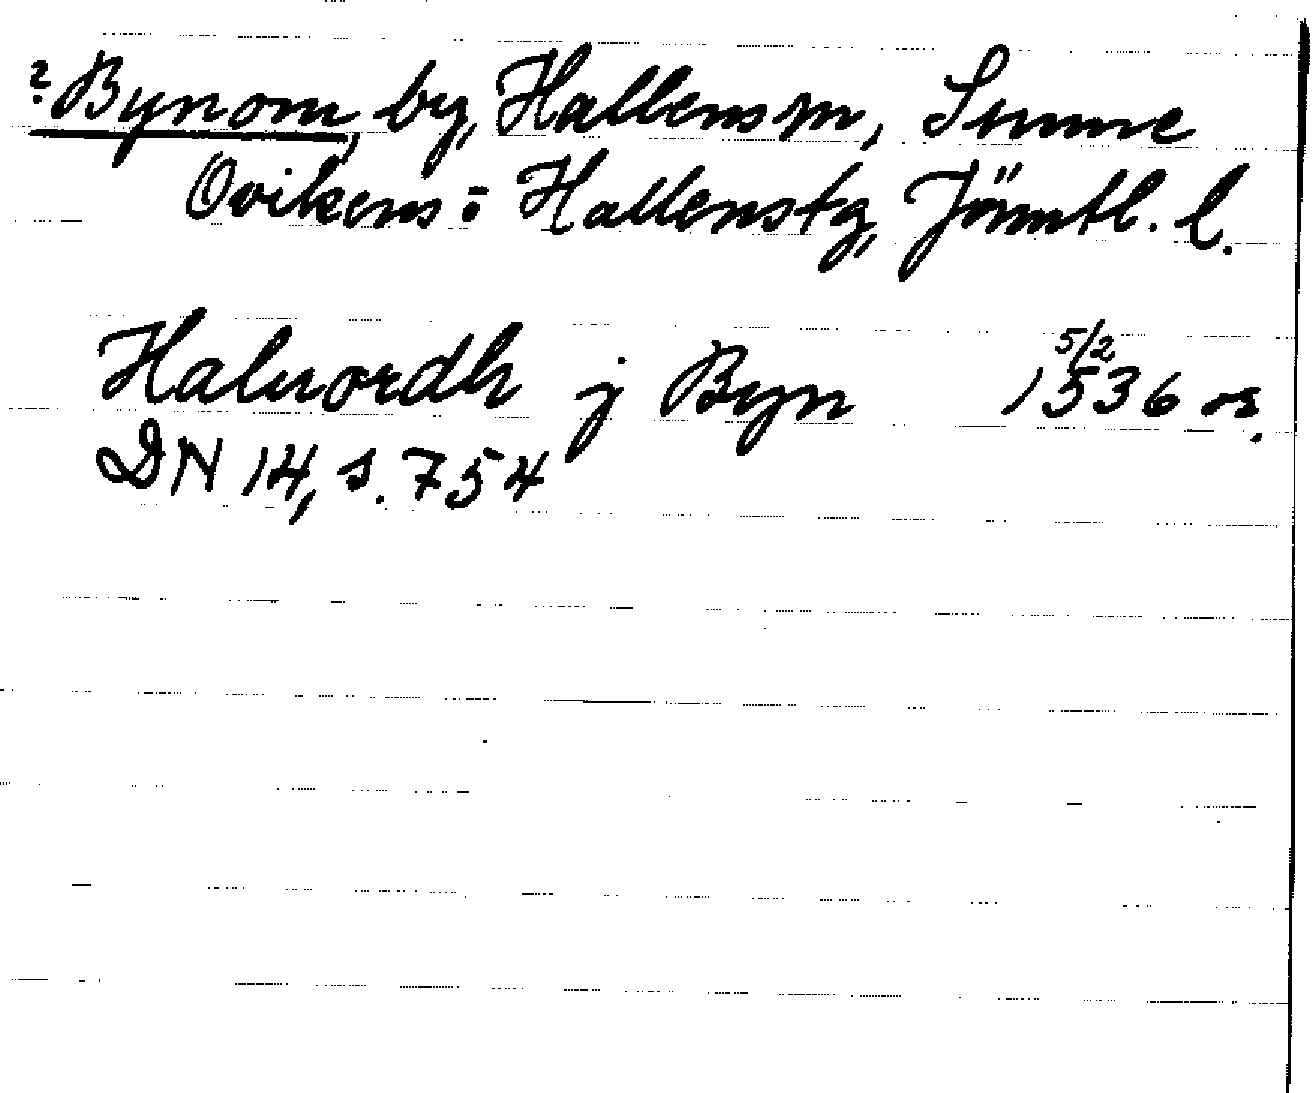 ? Bynom, by, Hallens sn, Sunne
Ovikens o Hallens tg, Jämtl. l.
Haluordh j Byn 5/2 1536 or.
DN 14, s. 754